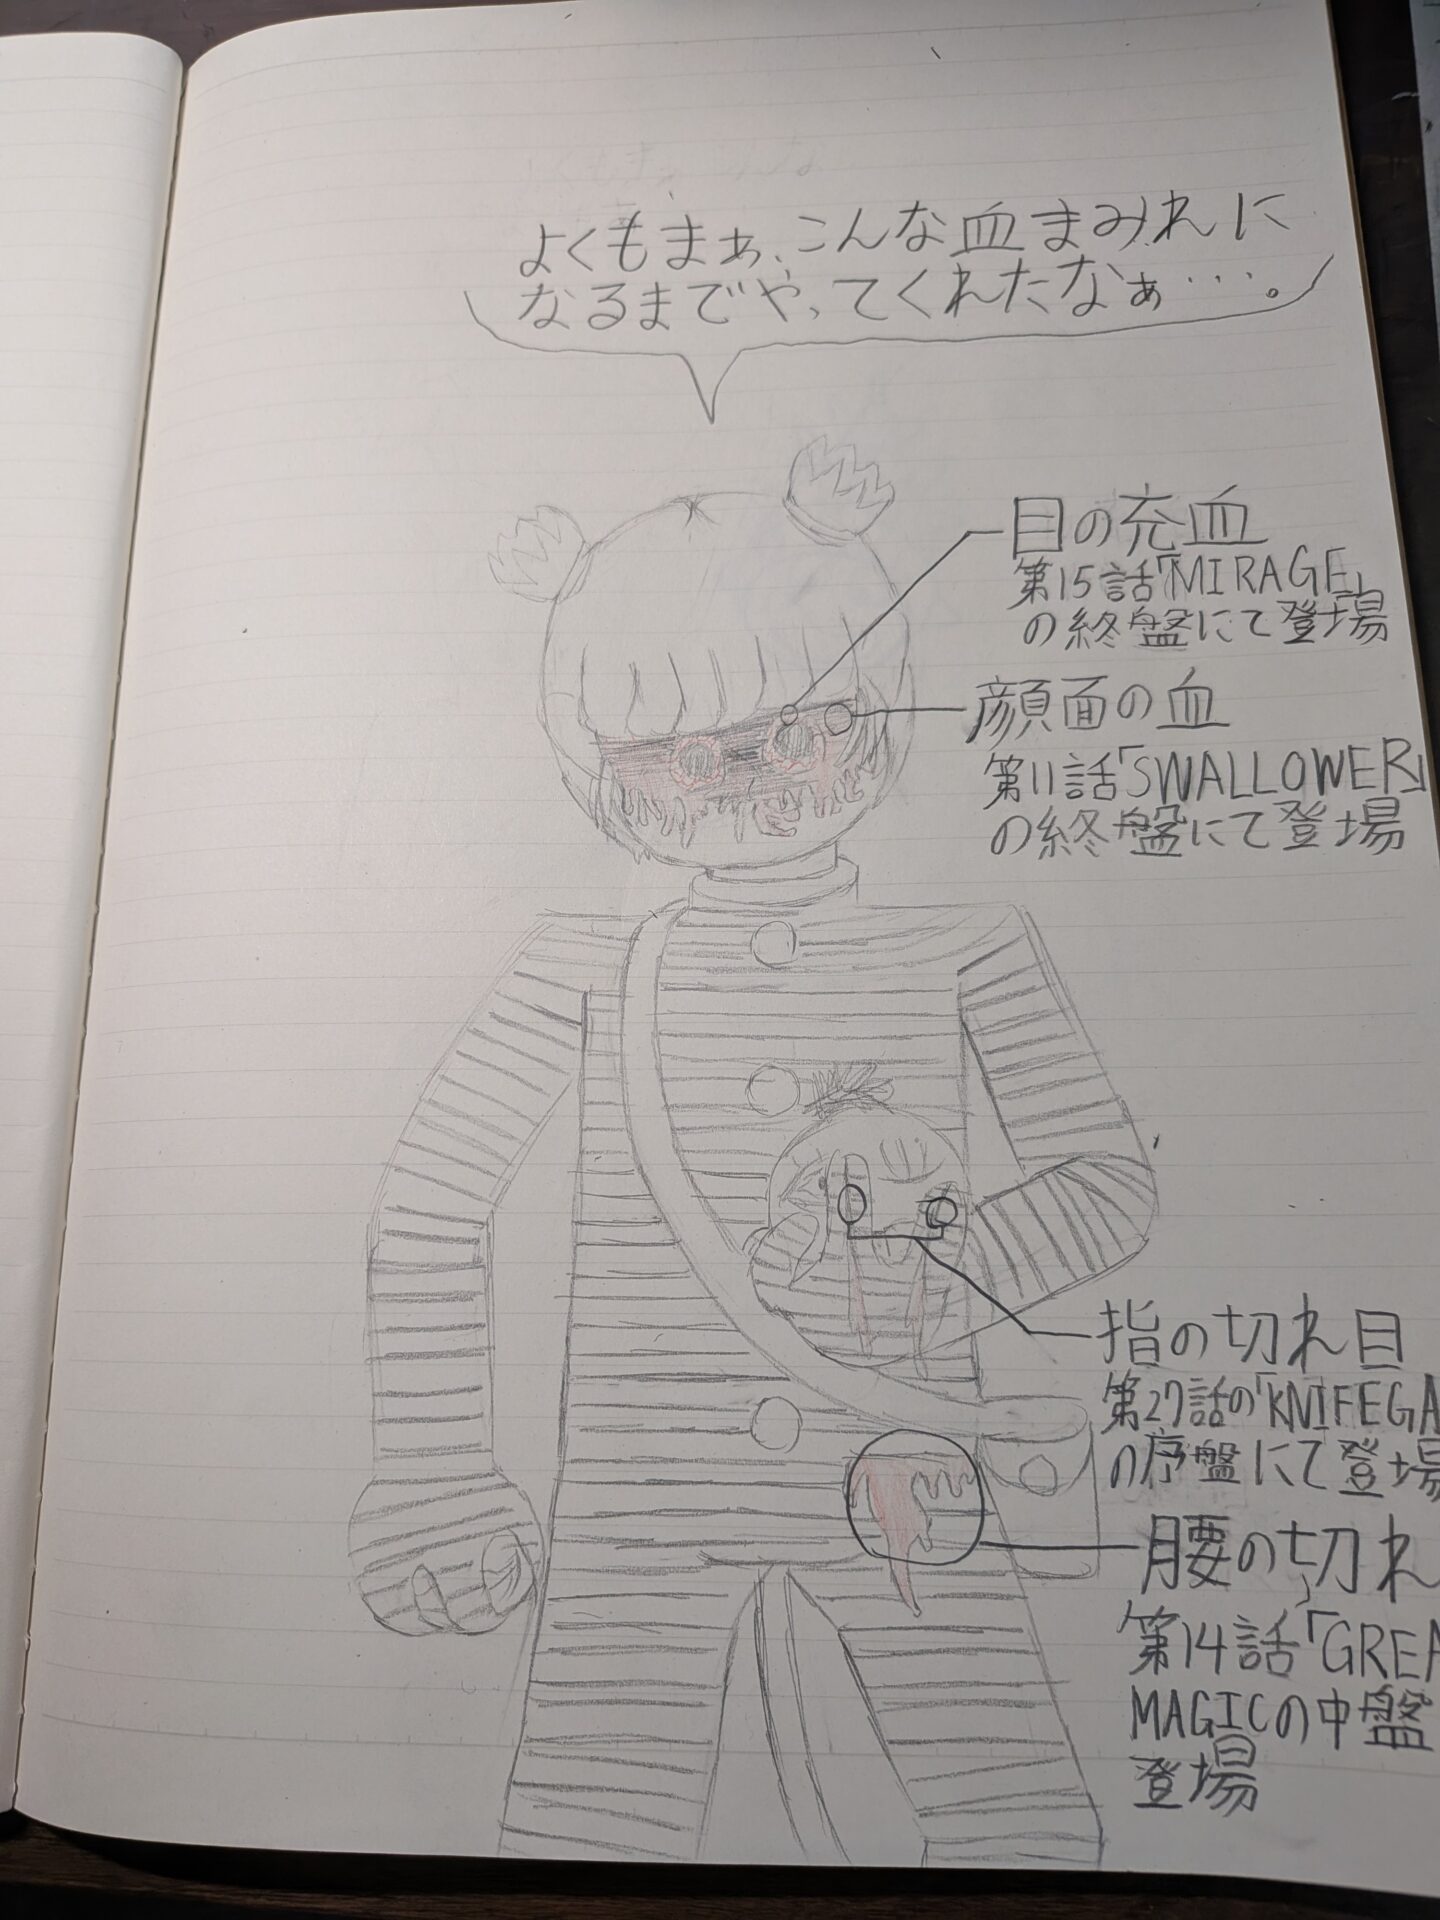 よくもまぁ、こんな血まみれに
なるまでやってくれたなぁ…。
目の充血
第15話「MIRAGE」
の終盤にて登場
顔面の血
第11話「SWALLOWER」
の終盤にて登場
指の切れ目
第27話の「KNIFEGA
の序盤にて登場
腰の切れ
第14話「GREA
MAGICの中盤
登場